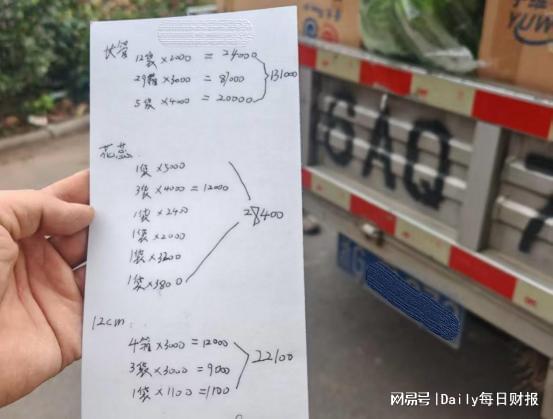 长管
12袋×2000 = 24000
29箱×3000 = 87000
5袋×4000 = 20000
131000
花蕊
1袋×5000
3袋×4000 = 12000
1袋×2400
1袋×2000
1袋×3200
1袋×3800
28400
12cm:
4箱×3000 = 12000
3袋×3000 = 9000
1袋×1100 = 1100
22100
YUW
16AQ
网易号 | Daily每日财报